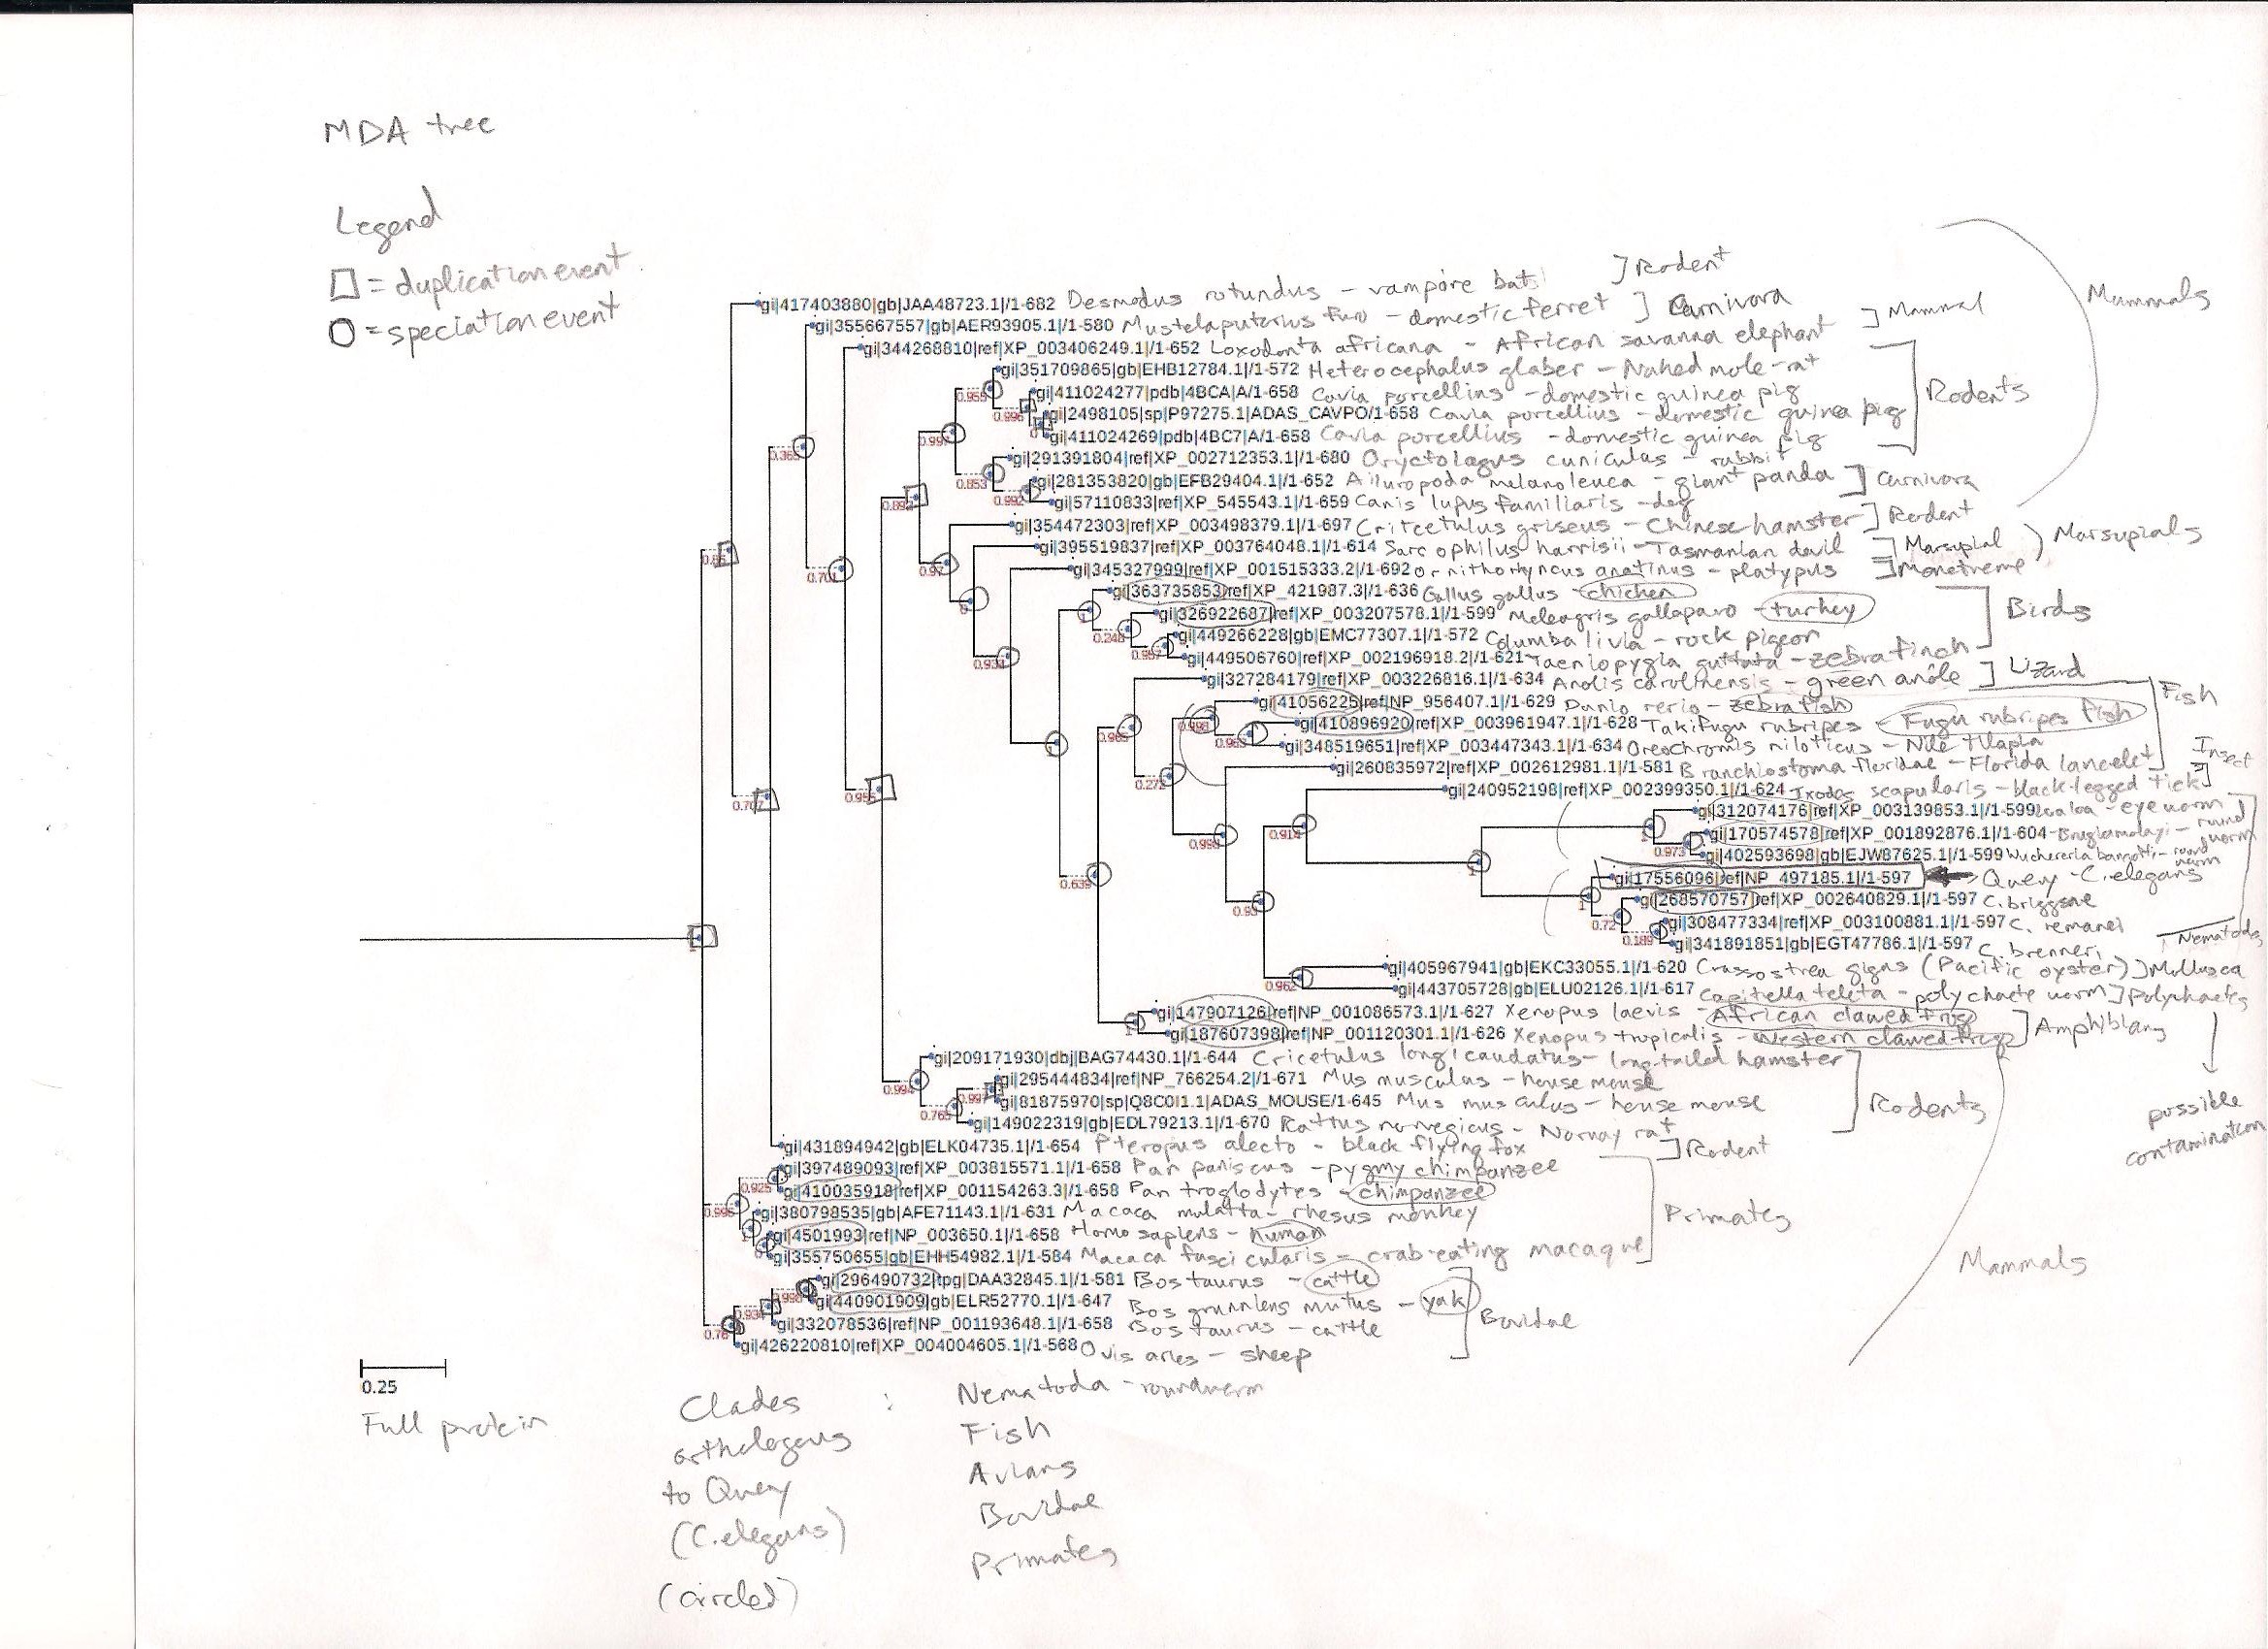 MDA tree
Legend
□ = duplication event
O = speciation event
gi|417403880|gb|JAA48723.1|/1-682 Desmodus rotundus - vampire bat ] Rodent
gi|355667557|gb|AER93905.1|/1-580 Mustelaputorius furo - domestic ferret ] Carnivora
gi|344268810|ref|XP_003406249.1|/1-652 Loxodonta africana - African savanna elephant ] Mammal
Mammals
gi|351709865|gb|EHB12784.1|/1-572 Heterocephalus glaber - Naked mole-rat
0.955
gi|411024277|pdb|4BCA|A/1-658 Cavia porcellius - domestic guinea pig
Rodents
0.996
gi|2498105|sp|P97275.1|ADAS_CAVPO/1-658 Cavia porcellius - domestic guinea pig
0
gi|411024269|pdb|4BC7|A/1-658 Cavia porcellius - domestic guinea pig
0.997
0.365
gi|291391804|ref|XP_002712353.1|/1-680 Oryctolagus cuniculus - rabbit
0.853
gi|281353820|gb|EFB29404.1|/1-652 Ailuropoda melanoleuca - giant panda ] Carnivora
0.992
gi|57110833|ref|XP_545543.1|/1-659 Canis lupus familiaris - dog
gi|354472303|ref|XP_003498379.1|/1-697 Critcetulus griseus - Chinese hamster ] Rodent
gi|395519837|ref|XP_003764048.1|/1-614 Sarcophilus harrisii - Tasmanian devil ] Marsupial
Marsupials
gi|345327999|ref|XP_001515333.2|/1-692 ornithorhyncus anatinus - platypus ] Monotreme
0.97
0.701
gi|363735853|ref|XP_421987.3|/1-636 Gallus gallus - chicken
0
gi|326922687|ref|XP_003207578.1|/1-599 Meleagris gallapavo - turkey
Birds
0.248
gi|449266228|gb|EMC77307.1|/1-572 Columba livia - rock pigeon
0.957
gi|449506760|ref|XP_002196918.2|/1-621 Taeniopygia guttata - zebra finch
0.934
gi|327284179|ref|XP_003226816.1|/1-634 Anolis carolinensis - green anole ] Lizard
gi|41056225|ref|NP_956407.1|/1-629 Danio rerio - zebrafish
Fish
0.998
gi|410896920|ref|XP_003961947.1|/1-628 Takifugu rubripes - Fugu rubripes fish
0.965
gi|348519651|ref|XP_003447343.1|/1-634 Oreochromis niloticus - Nile tilapia
1
gi|260835972|ref|XP_002612981.1|/1-581 Branchiostoma floridae - Florida lancelet
Insect
0.272
gi|240952198|ref|XP_002399350.1|/1-624 Ixodes scapularis - black-legged tick ]
0.707
0.955
gi|312074176|ref|XP_003139853.1|/1-599 Loa loa - eye worm
0.914
gi|170574578|ref|XP_001892876.1|/1-604 - Brugia malayi - round worm
0.998
0.973
gi|402593698|gb|EJW87625.1|/1-599 Wuchereria bancrofti - round worm
1
gi|17556096|ref|NP_497185.1|/1-597 Query - C. elegans
0.639
gi|268570757|ref|XP_002640829.1|/1-597 C. briggsae
0.93
1
gi|308477334|ref|XP_003100881.1|/1-597 C. remanei
0.72
Nematoda
0.189
gi|341891851|gb|EGT47786.1|/1-597 C. brenneri
gi|405967941|gb|EKC33055.1|/1-620 Crassostrea gigas (Pacific oyster) ] Mollusca
0.962
gi|443705728|gb|ELU02126.1|/1-617 Capitella teleta - polychaete worm ] Polychaetes
gi|147907126|ref|NP_001086573.1|/1-627 Xenopus laevis - African clawed frog
1
gi|187607398|ref|NP_001120301.1|/1-626 Xenopus tropicalis - Western clawed frog ] Amphibians
gi|209171930|dbj|BAG74430.1|/1-644 Cricetulus longicaudatus - long-tailed hamster
gi|295444834|ref|NP_766254.2|/1-671 Mus musculus - house mouse
0.994
0.997
gi|81875970|sp|Q8C0I1.1|ADAS_MOUSE/1-645 Mus musculus - house mouse
Rodents
0.765
possible
contamination
gi|149022319|gb|EDL79213.1|/1-670 Rattus norvegicus - Norway rat
gi|431894942|gb|ELK04735.1|/1-654 Pteropus alecto - black flying fox ] Rodent
gi|397489093|ref|XP_003815571.1|/1-658 Pan paniscus - pygmy chimpanzee
0.925
gi|410035918|ref|XP_001154263.3|/1-658 Pan troglodytes - chimpanzee
0.995
gi|380798535|gb|AFE71143.1|/1-631 Macaca mulatta - rhesus monkey
Primates
1
gi|4501993|ref|NP_003650.1|/1-658 Homo sapiens - human
0
gi|355750655|gb|EHH54982.1|/1-584 Macaca fascicularis - crab-eating macaque
Mammals
gi|296490732|tpg|DAA32845.1|/1-581 Bos taurus - cattle
gi|440901909|gb|ELR52770.1|/1-647 Bos grunniens mutus - yak
Bovidae
0.934
gi|332078536|ref|NP_001193648.1|/1-658 Bos taurus - cattle
0.76
gi|426220810|ref|XP_004004605.1|/1-568 Ovis aries - sheep
0.25
Full protein
Clades : Nematoda - roundworm
orthologous Fish
to Query Avians
(C. elegans) Bovidae
(circled) Primates